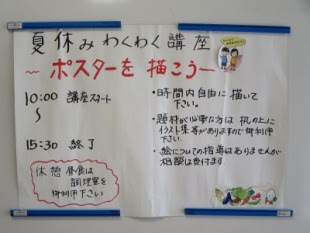 夏休みわくわく講座
～ポスターを描こう～
10:00 講座スタート
～
15:30 終了
休憩 昼食は
調理室を
御利用下さい
・時間内自由に描いて
下さい。
・題材が必要な方は机の上に
イラスト集等がありますので御利用
下さい。
・絵についての指導はありませんが
相談は受けます